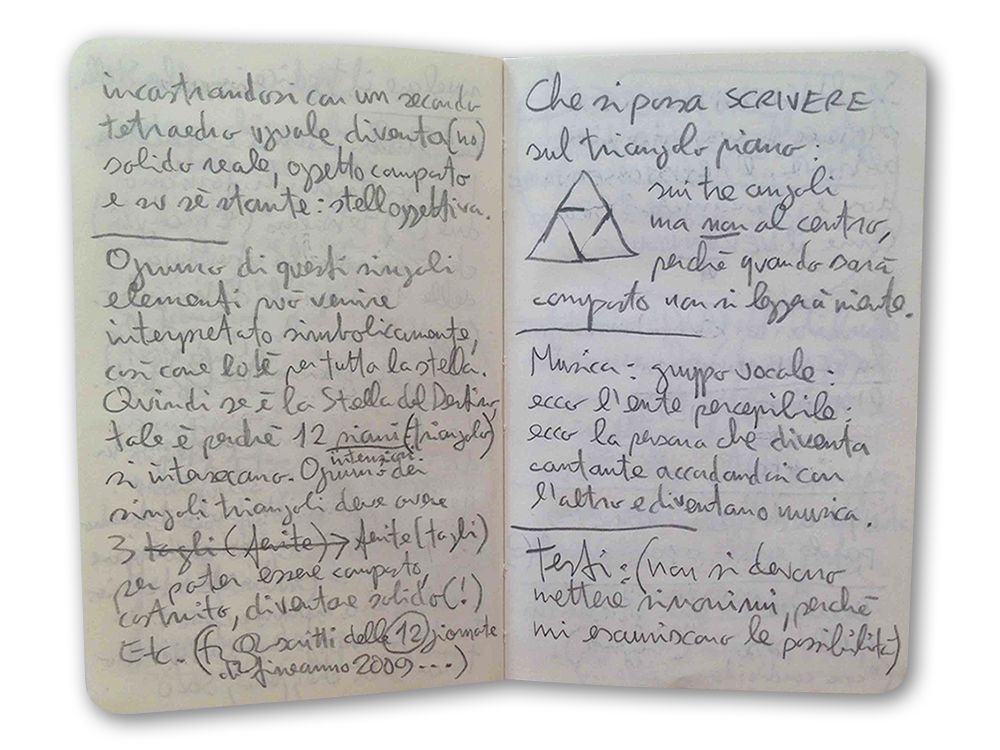 incastrandosi con un secondo
tetraedro uguale diventa(no)
solido reale, oggetto compiuto
e su sè stante: stelloggettiva.
Ognuno di questi singoli
elementi può venire
interpretato simbolicamente,
così come lo è per tutta la stella.
Quindi se è la Stella del Destino,
tale è perché 12 piani (triangolo)
intenzioni
si intersecano. Ognuno dei
singoli triangoli deve avere
3 tagli (ferite) → ferite (tagli)
per poter essere composto,
costruito, diventare solido (!)
Etc. ( scritti delle 12 giornate
di fineanno 2009 ...)
Che si possa SCRIVERE
sul triangolo piano:
sui tre angoli
ma non al centro,
perché quando sarà
composto non si leggerà niente.
Musica: gruppo vocale:
ecco l'ente percepibile;
ecco la persona che diventa
cantante accordandosi con
l'altro e diventano musica.
Testi: (non si devono
mettere sinonimi, perché
mi esauriscono le possibilità)